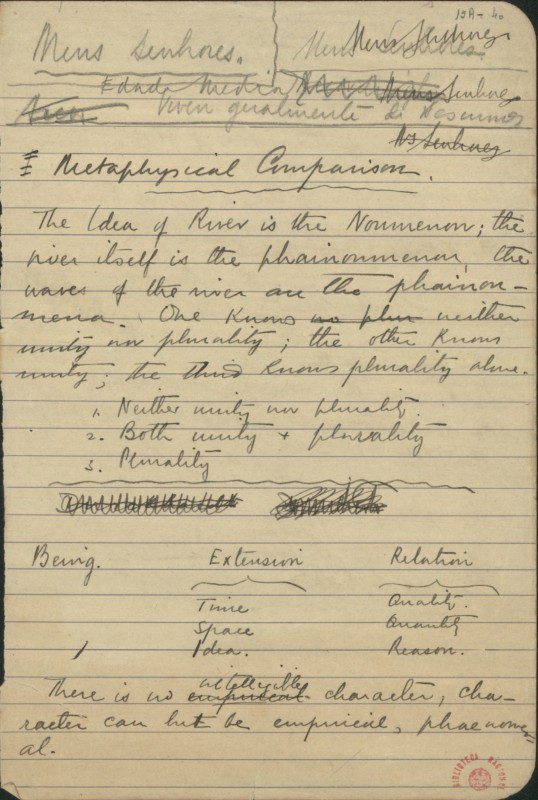 15A-40
Meus Senhores. Meus Senhores.
Meus Senhores
Edade Media Meus Senhores
vivem geralmente de
Os Senhores
Metaphysical Comparison.
The Idea of River is the Noumenon; the
river itself is the phainonmenon, the
waves of the river are the phainon-
mena. One knows no plur neither
unity nor plurality; the other knows
unity; the third knows plurality alone.
1. Neither unity nor plurality.
2. Both unity + plurality
3. Plurality
Being. Extension Relation
Time Quality.
Space Quantity
/ Idea. Reason.
intelligible
There is no empirical character, cha-
racter can but be empirical, phaenomen-
al.
BIBLIOTECA NACIONAL